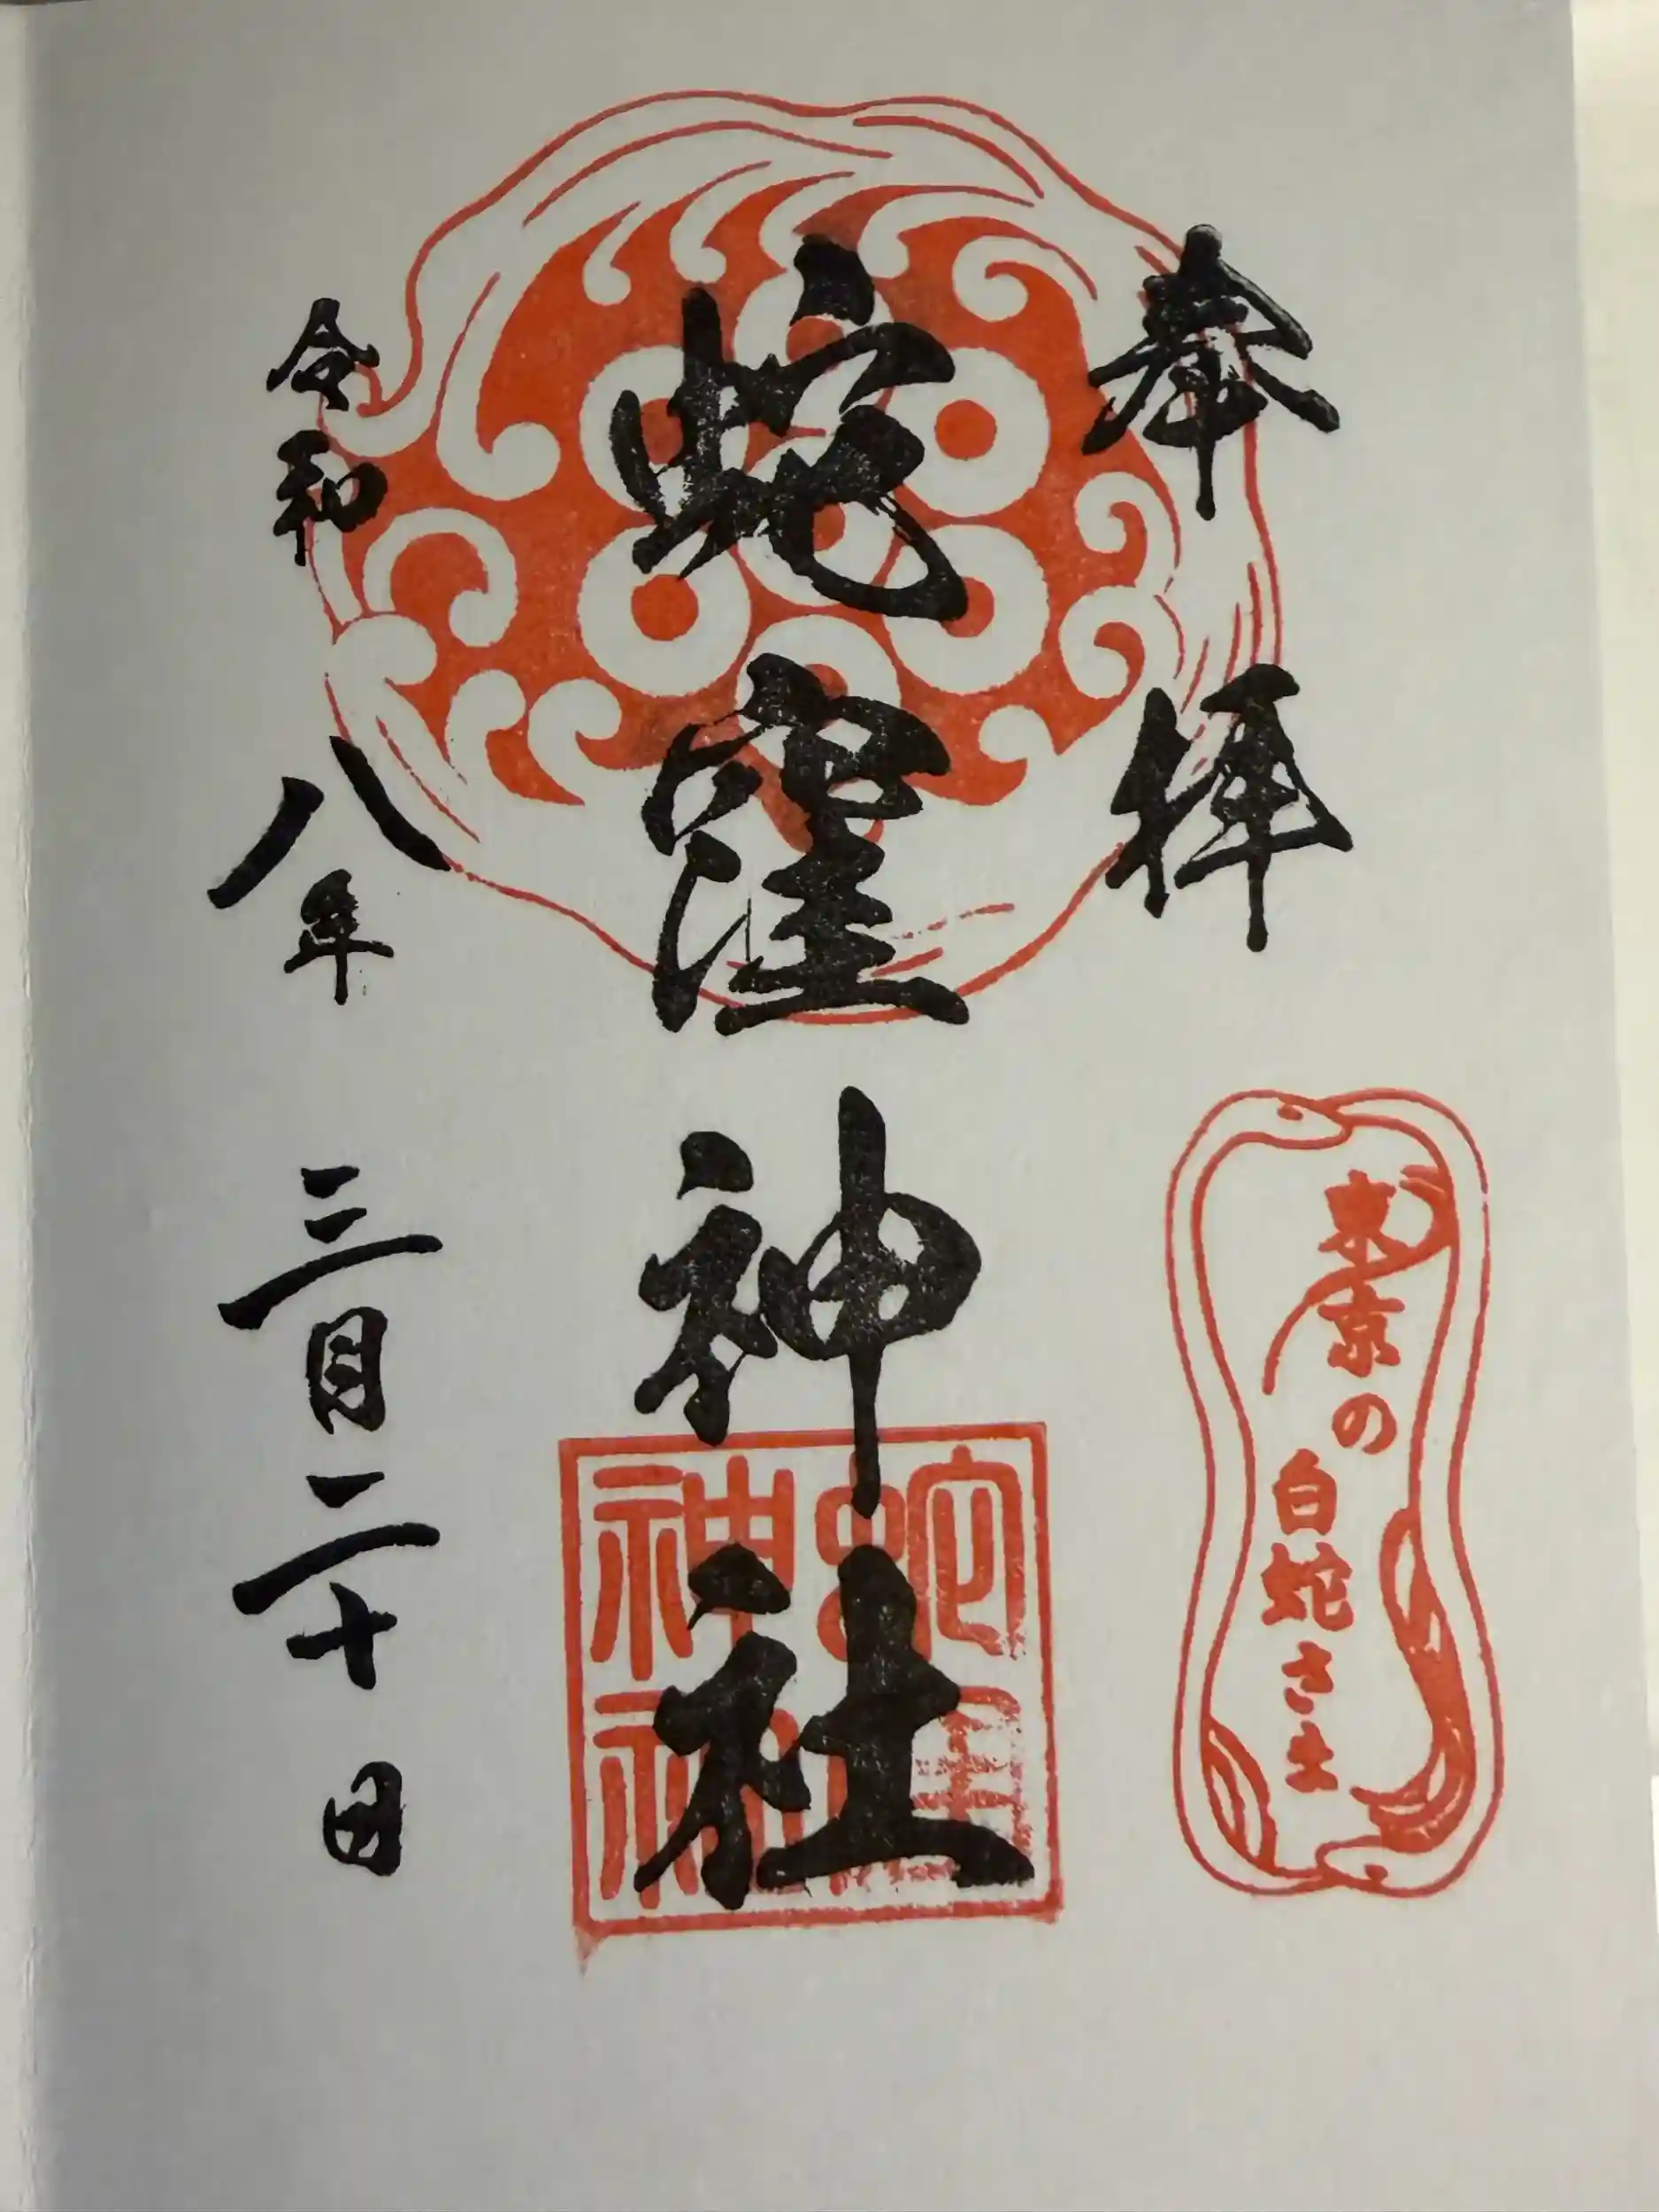 奉拝
東京の
白蛇さま
蛇窪神社
蛇窪
神社
令和八年三月二十日